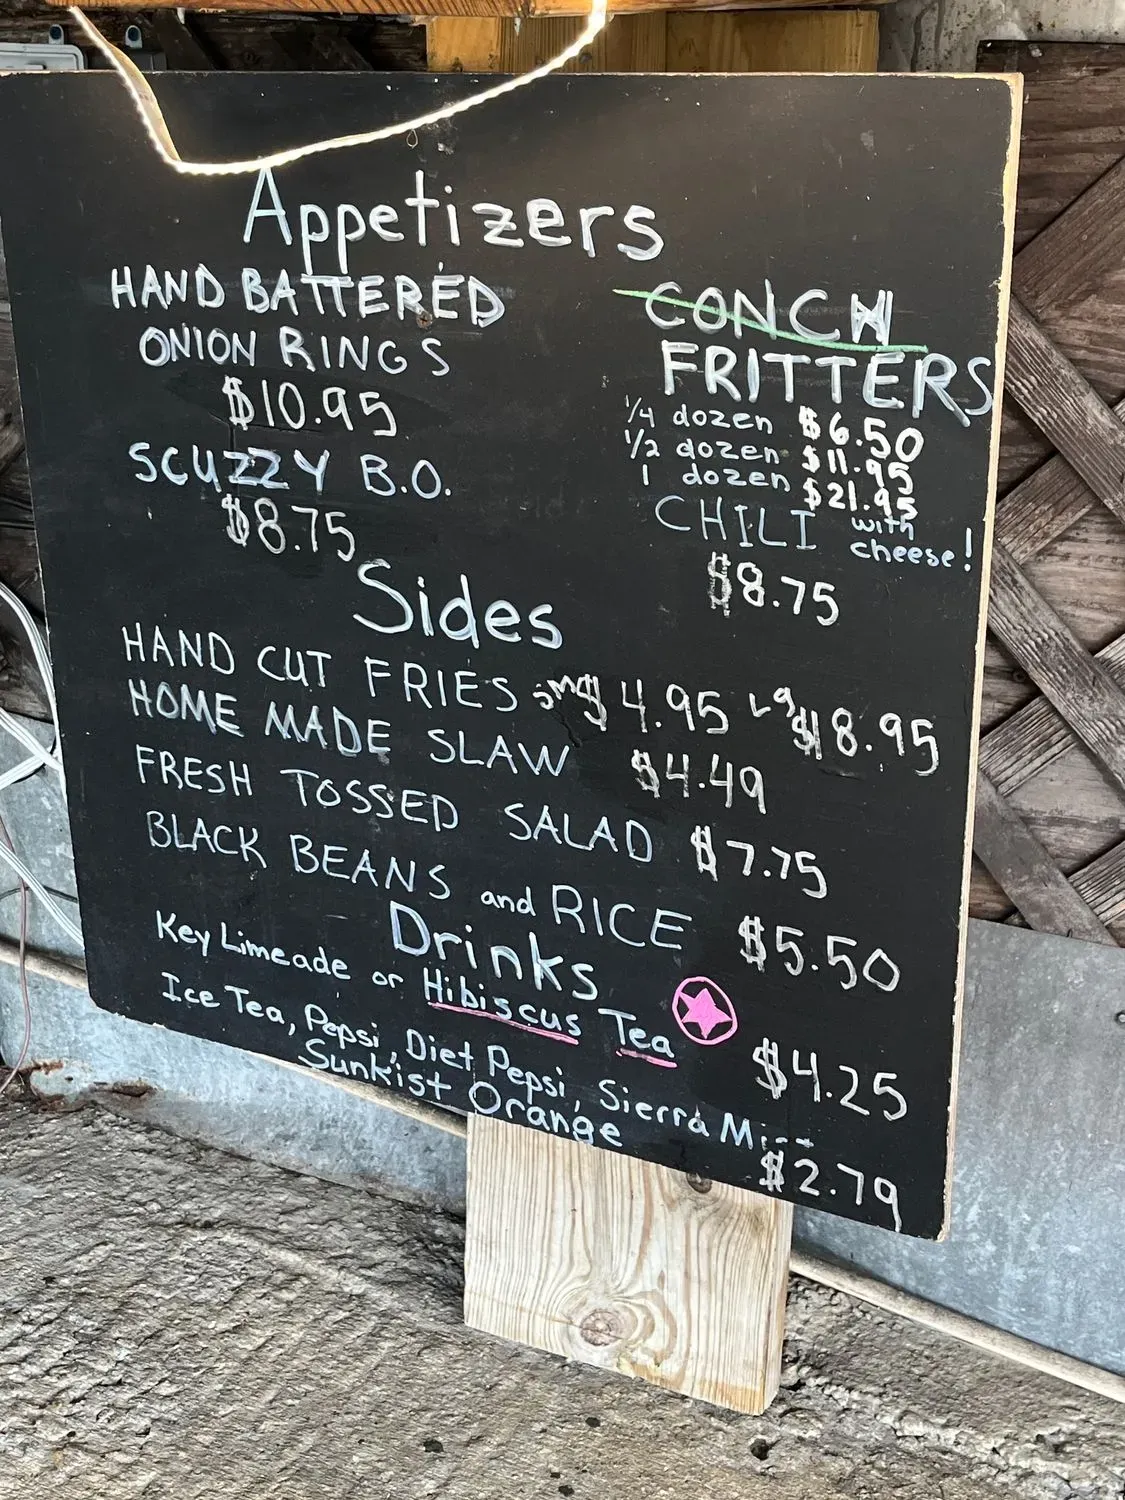 Appetizers
HAND BATTERED
ONION RINGS
$10.95
SCUZZY B.O.
$8.75
CONCH
FRITTERS
1/4 dozen $6.50
1/2 dozen $11.95
1 dozen $21.95
CHILI with cheese!
$8.75
Sides
HAND CUT FRIES sm $4.95 Lg $8.95
HOME MADE SLAW $4.49
FRESH TOSSED SALAD $7.75
BLACK BEANS and RICE $5.50
Drinks
Key Limeade or Hibiscus Tea $4.25
Ice Tea, Pepsi, Diet Pepsi, Sierra Mist
Sunkist Orange $2.79